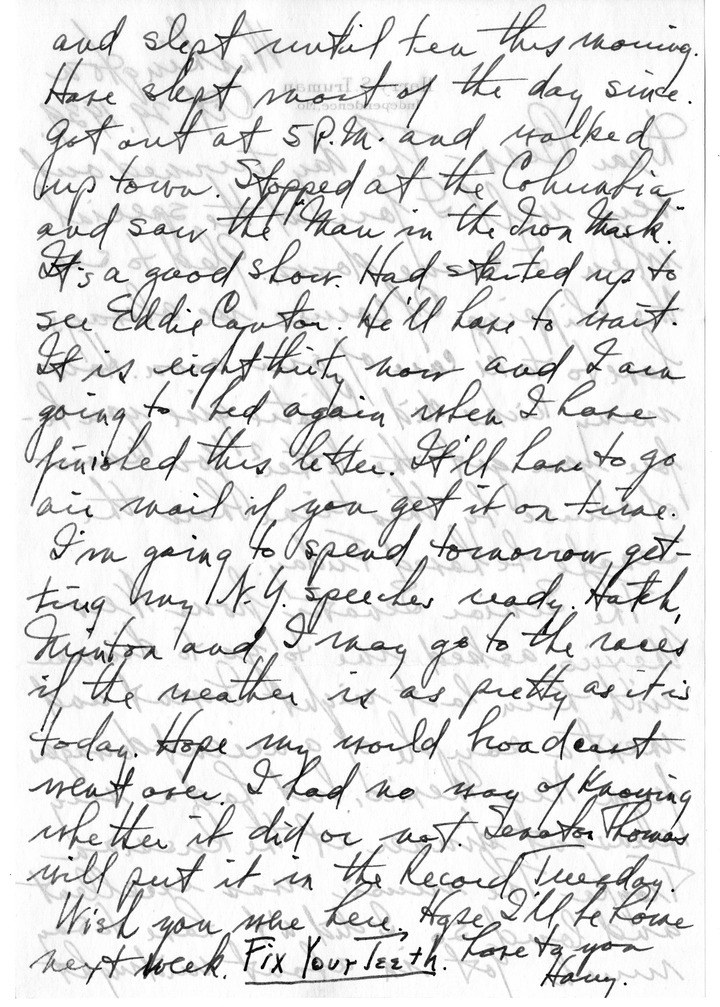 and slept until ten this morning.
Have slept most of the day since.
Got out at 5 P.M. and walked
up town. Stopped at the Columbia
and saw the "Man in the Iron Mask."
It's a good show. Had started up to
see Eddie Cantor. He'll have to wait.
It is eight thirty now and I am
going to bed again when I have
finished this letter. It'll have to go
air mail if you get it on time.
I'm going to spend tomorrow get-
ting my N.Y. speeches ready. Hatch,
Minton and I may go to the races
if the weather is as pretty as it is
today. Hope my world broadcast
went over. I had no way of knowing
whether it did or not. Senator Thomas
will put it in the Record Tuesday.
Wish you were here. Hope I'll be home
next week. Fix Your Teeth. Love to you
Harry.